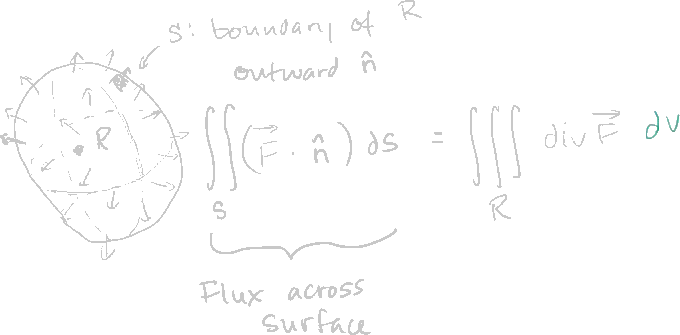 S: boundary of R
outward n̂
R
∬_S (F⃗ · n̂) ds = ∭_R div F⃗ dV
Flux across
surface